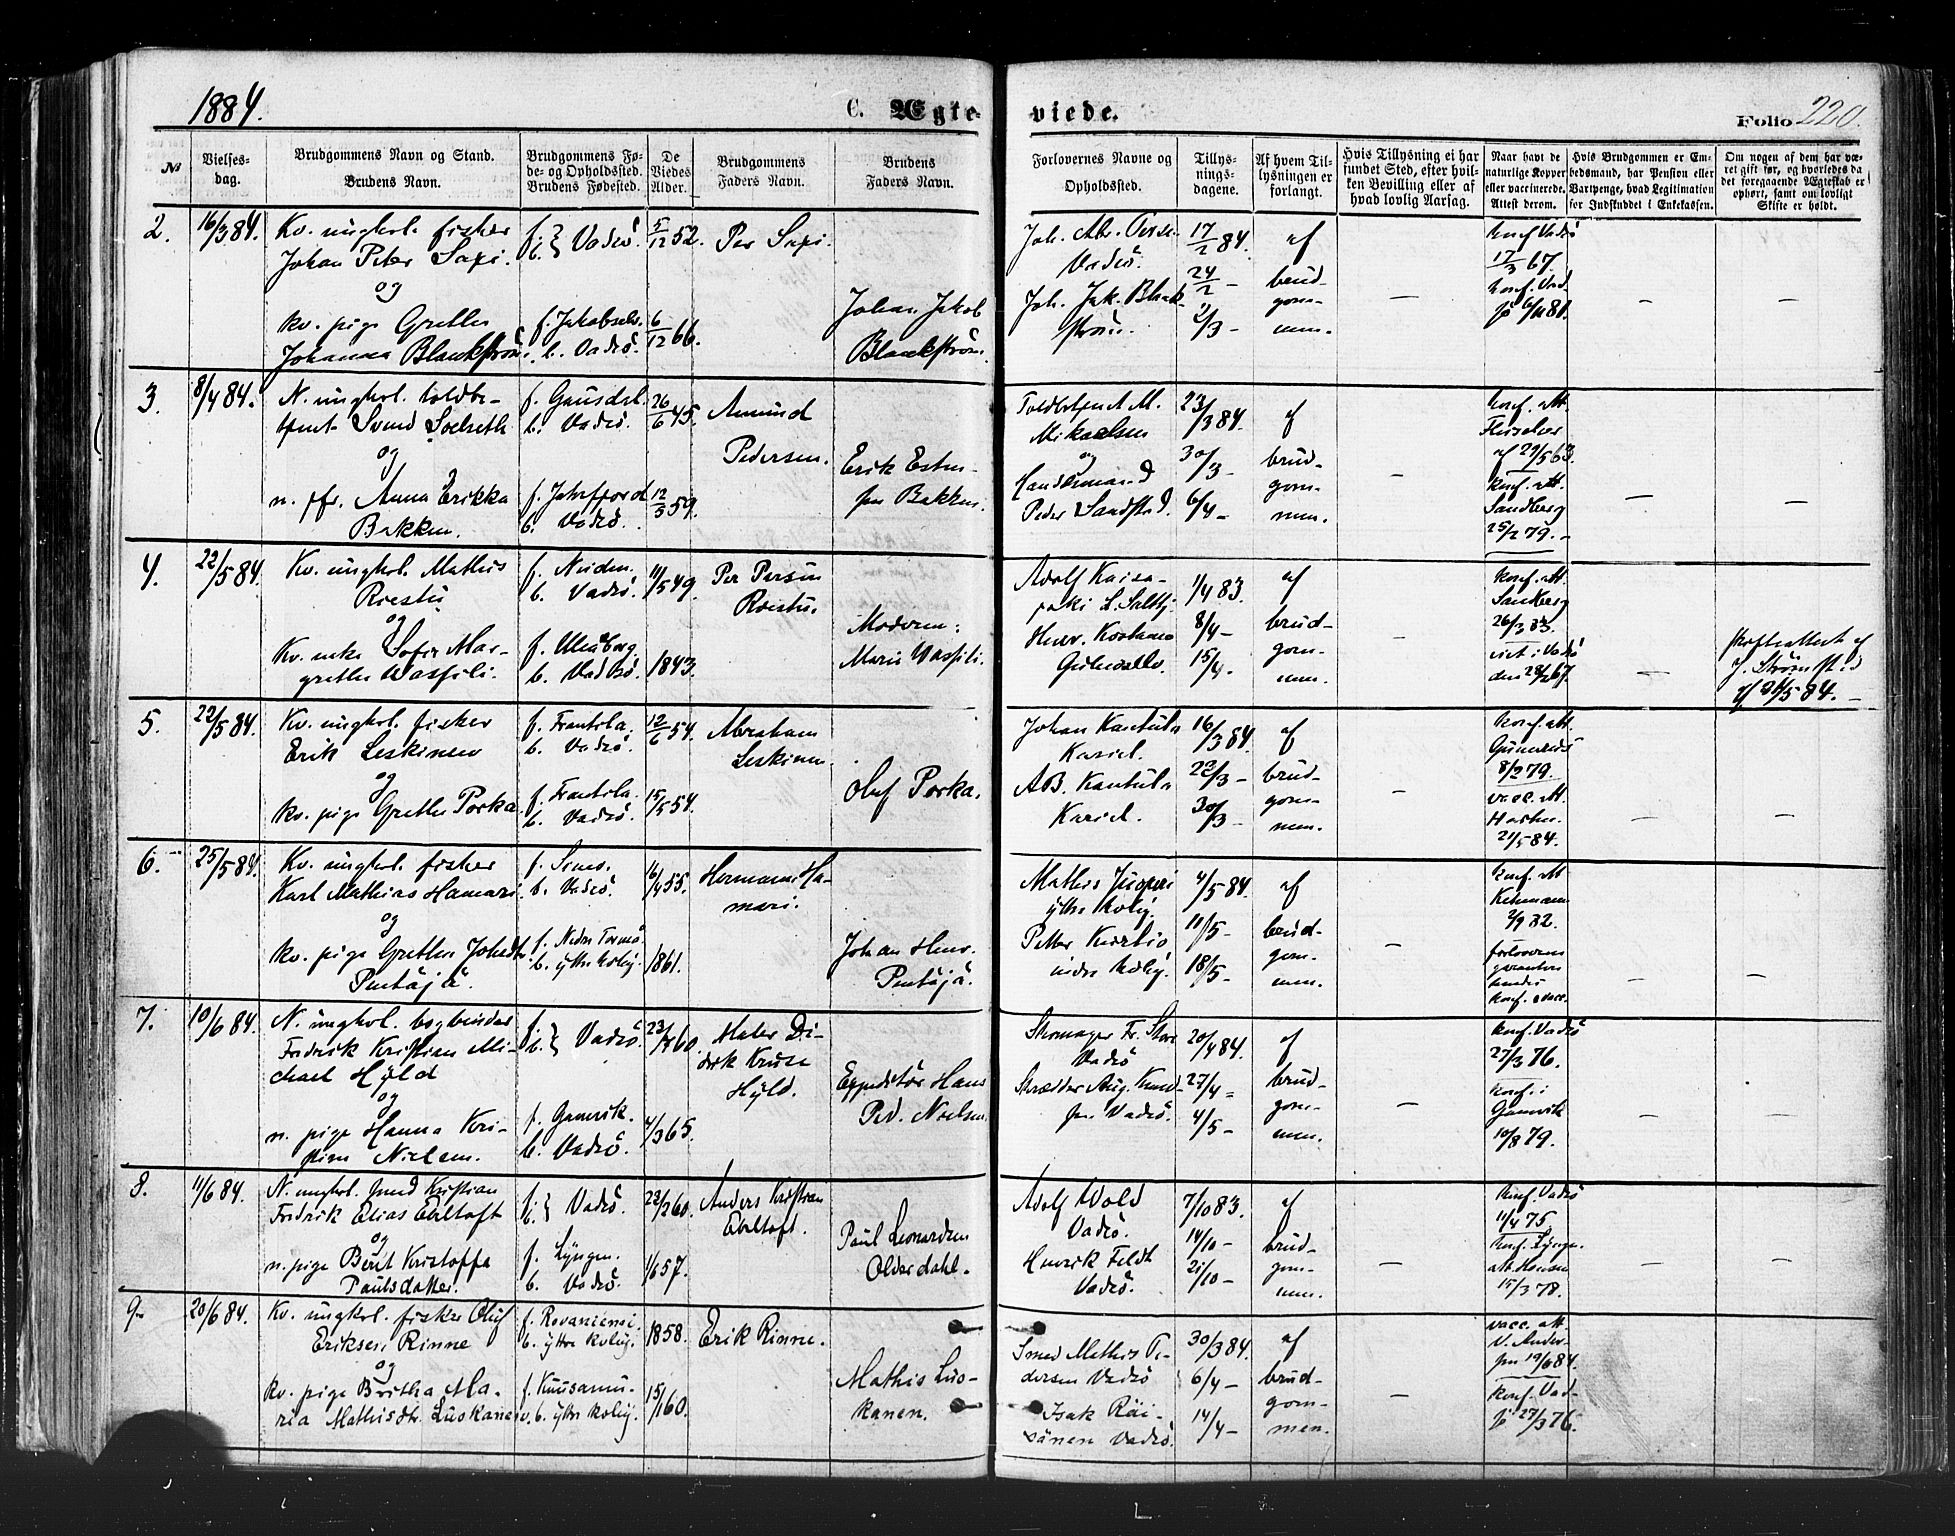 1884.
C. Ægte-
viede.
Folio 220.
No
Vielses-
dag.
Brudgommens Navn og Stand.
Brudens Navn.
Brudgommens Fø-
de- og Opholdssted.
Brudens Fødested.
De
Viedes
Alder.
Brudgommens
Faders Navn.
Brudens
Faders Navn.
Forlovernes Navne og
Opholdssted.
Tillys-
nings-
dagene.
Af hvem Til-
lysningen er
forlangt.
Hvis Tillysning ei har
fundet Sted, efter hvil-
ken Bevilling eller af
hvad lovlig Aarsag.
Naar havt de
naturlige Kopper
eller vaccinerede.
Attest derom.
Hvis Brudgommen er Em-
bedsmand, har Pension eller
Vartpenge, hvad Legitimation
for Indskuddet i Enkekassen.
Om nogen af dem har væ-
ret gift før, og hvorledes da
det foregaaende Ægteskab er
ophørt, samt om lovligt
Skifte er holdt.
2.
16/3 84.
Kv. ungkal. fisker
Johan Peter Sapi.
og
kv. pige Grethe
Johanna Blankström.
f. } Vadsö.
b. }
f. Jakobselv.
b. Vadsö.
5/12 52.
6/12 66.
Per Sapi.
Johan Jakob
Blankström.
Vadsö.
Joh. Jak. Blank-
ström.
17/2 84.
24/2 –
2/3 –
af
brud-
gom-
men.
–
konf. Vadsö
17/3 67.
konf. Vad-
–
–
3.
8/4 84.
N. ungkal. toldbe-
tjent Svend Solseth
og
n. jfr. Anna Erikka
Bakken.
f. Gausdal.
b. Vadsö.
b. Vadsö.
26/6 45.
12/5 59.
Amund
Pedersen.
Erik Esten-
sen Bakken.
Toldbetjent M.
Mikaelsen
og
Handelsmand
Peder Sandstad.
23/3 84.
30/3 –
6/4 –
af
brud-
gom-
men.
–
konf. att.
Fleischer
af 29/5 63.
konf. att.
Sandberg
25/2 79. –
–
–
4.
22/5 84.
Kv. ungkal. Mathis
Roestu
og
Kv. enke Sofie Mar-
grethe Wasfili.
f. Neiden.
b. Vadsö.
f. Uleåborg.
b. Vadsö.
11/5 49.
1843.
Per Persen
Roestu.
Moderen:
Marie Vasfili.
1/4 83.
8/4 –
15/4 –
af
brud-
gom-
men.
–
konf. att.
Sandberg
viet i Vadsö
–
Skifteattest af
J. Strömsted
5.
22/5 84.
Kv. ungkal. fisker
Erik Leskinen
og
kv. pige Grethe Porka
f. Frantsila.
b. Vadsö.
f. Frantsila.
b. Vadsö.
12/6 54.
15/5 54.
Abraham
Leskinen.
Oluf Porka.
Johan Kantula
Kariel.
A. B. Kantula
Kariel.
16/3 84.
23/3 –
30/3 –
af
brud-
gom-
men.
–
konf. att.
8/2 79.
vacc. att.
21/5 84.
–
–
6.
25/5 84.
Kv. ungkal. fisker
Karl Mathias Hamari
og
kv. pige Grethe Johsdtr.
Pentäjä.
f. Simo.
b. Vadsö.
f. Nedre Torneå
b. yttre Kobig.
1861.
Hermann Ha-
mari.
Johan Henr.
Pentäjä.
Mathis
ytre Kobig.
Petter
indre Kobig.
4/5 84.
11/5 –
18/5 –
af
brud-
gom-
men.
–
konf. att.
forloverne
garanterer
konf. & vacc.
–
–
7.
10/6 84.
N. ungkal. bogbinder
Fredrik Kristian Mi-
chael Hÿld
og
n. pige Hanna Kri-
stine Nielsen.
f. } Vadsö.
b. }
f. Gamvik.
b. Vadsö.
4/3 65.
Maler Di-
drik Kruse
Hÿld.
Expeditör Hans
Ped. Nielsen.
Skomager Fr.
Vadsö
Skrædder Aug. Knud-
sen Vadsö.
20/4 84.
27/4 –
4/5 –
af
brud-
gom-
men.
–
konf. Vadsö
27/3 76.
konf. i
Gamvik
10/8 79.
–
–
8.
11/6 84.
N. ungkal. smed Kristian
Fredrik Elias Ebeltoft
og
n. pige Berit Kristoffa
Paulsdatter.
f. } Vadsö.
b. }
f. Lyngen.
b. Vadsö.
22/2 60.
1/6 57.
Anders Kristian
Ebeltoft.
Paul Leonardsen
Olderdahl.
Adolf Wold
Vadsö.
Henrik Feldt
Vadsö.
7/10 83.
14/10 –
21/10 –
af
brud-
gom-
men.
–
konf. Vadsö
11/4 75.
konf. Lyngen.
att. Hansen
15/3 78.
–
–
9.
20/6 84.
Kv. ungkal. fisker Oluf
Eriksen Rinne
og
kv. pige Britha Ma-
ria Mathisdtr. Luskanen
f. Rovaniemi.
b. ytre Kobig.
f. Kuusamu.
b. ytre Kobig.
1858.
15/1 60.
Erik Rinne.
Mathis Lus-
kanen.
Smed Mathis Pe-
dersen Vadsö
Isak Räi-
sänen Vadsö.
30/3 84.
6/4 –
14/4 –
af
brud-
gom-
men.
–
vacc. att.
V. Ander-
sen 19/6 84.
konf. Vad-
sö 27/3 76.
–
–